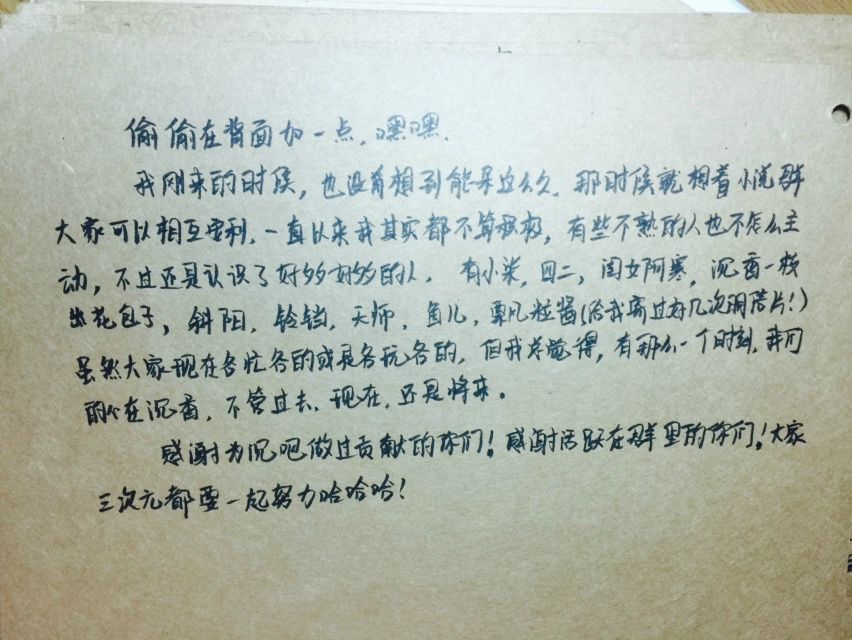 偷偷在背面加一点,嘿嘿.
我刚来的时候,也没有想到能呆这么久.那时候就想着小说群
大家可以相互安利.一直以来我其实都不算积极,有些不熟的人也不怎么主
动,不过还是认识了好多好多的人.有小柒,四二,闺女阿寒,沉香一枝
花包子,斜阳,铃铛,天师,鱼儿,粒酱(给我寄过好几次明信片!)
虽然大家现在各忙各的或是各玩各的,但我总觉得,有那么一个时刻,我们
的心在沉香,不管过去.现在,还是将来。
感谢为沉吧做过贡献的你们!感谢活跃在群里的你们!大家
三次元都要一起努力哈哈哈!